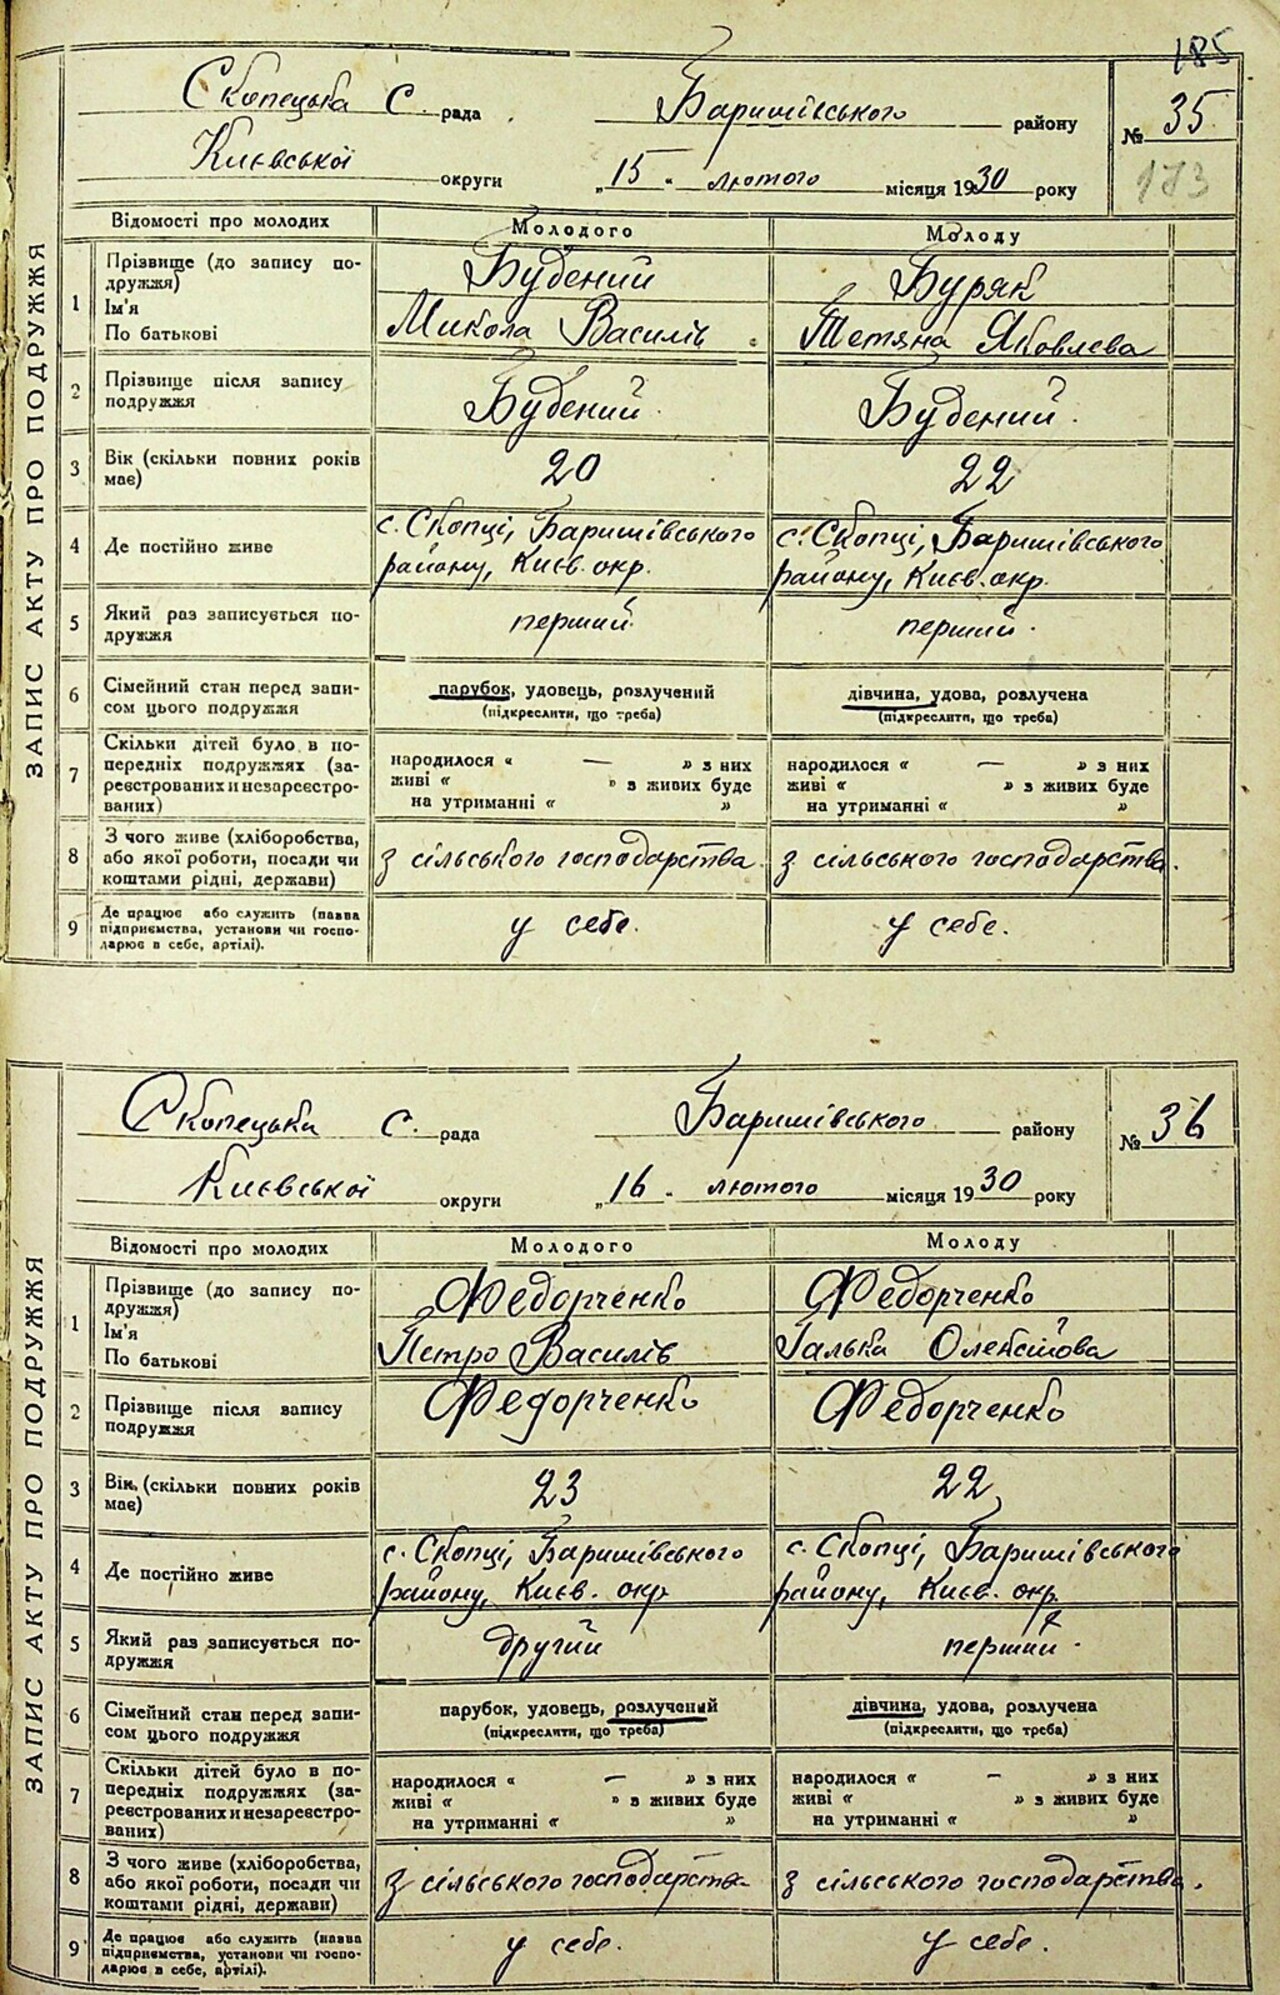 185
Скопецька С. рада Баришівського району № 35
Києвської округи „15“ лютого місяця 1930 року 173
ЗАПИС АКТУ ПРО ПОДРУЖЖЯ
Відомості про молодих Молодого Молоду
1 Прізвище (до запису по- Будений Буряк
дружжя)
Ім'я Микола Василів Тетяна Яковлева
По батькові
2 Прізвище після запису Будений Будений.
подружжя
3 Вік (скільки повних років 20 22
має)
4 Де постійно живе с. Скопці, Баришівського с. Скопці, Баришівського
району, Києв. окр. району, Києв. окр.
5 Який раз записується по- перший. перший.
дружжя
6 Сімейний стан перед запи- парубок, удовець, розлучений дівчина, удова, розлучена
сом цього подружжя (підкреслити, що треба) (підкреслити, що треба)
7 Скільки дітей було в по- народилося « — » з них народилося « — » з них
передніх подружжях (за- живі « » з живих буде живі « » з живих буде
реєстрованих и незареєстро- на утриманні « » на утриманні « »
ваних)
8 З чого живе (хліборобства, з сільського господарства. з сільського господарства.
або якої роботи, посади чи
коштами рідні, держави)
9 Де працює або служить (назва у себе. у себе.
підприємства, установи чи госпо-
дарює в себе, артілі).
Скопецька С. рада Баришівського району № 36
Києвської округи „16“ лютого місяця 1930 року
ЗАПИС АКТУ ПРО ПОДРУЖЖЯ
Відомості про молодих Молодого Молоду
1 Прізвище (до запису по- Федорченко Федорченко
дружжя)
Ім'я Петро Василів Галька Олексійова
По батькові
2 Прізвище після запису Федорченко Федорченко
подружжя
3 Вік (скільки повних років 23 22
має)
4 Де постійно живе с. Скопці, Баришівського с. Скопці, Баришівського
району, Києв. окр. району, Києв. окр.
5 Який раз записується по- другий перший.
дружжя
6 Сімейний стан перед запи- парубок, удовець, розлучений дівчина, удова, розлучена
сом цього подружжя (підкреслити, що треба) (підкреслити, що треба)
7 Скільки дітей було в по- народилося « — » з них народилося « — » з них
передніх подружжях (за- живі « » з живих буде живі « » з живих буде
реєстрованих и незареєстро- на утриманні « » на утриманні « »
ваних)
8 З чого живе (хліборобства, з сільського господарства з сільського господарства.
або якої роботи, посади чи
коштами рідні, держави)
9 Де працює або служить (назва у себе. у себе.
підприємства, установи чи госпо-
дарює в себе, артілі).